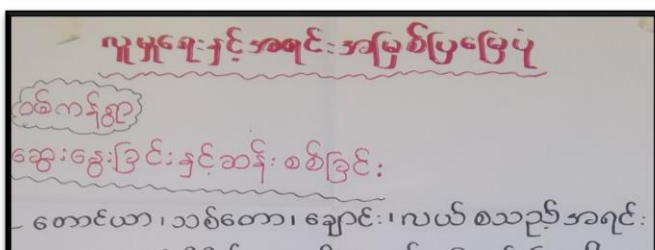 လူမှုရေးနှင့်အရင်းအမြစ်ပြမြေပုံ
ဝမ်ကန်ရွာ
ဆွေးနွေးခြင်းနှင့်ဆန်းစစ်ခြင်း
- တောင်ယာ၊ သစ်တော၊ ချောင်း၊ လယ် စသည့်အရင်း